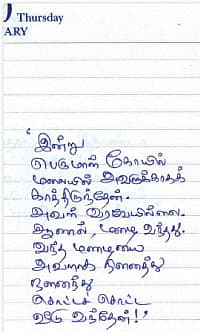 Thursday
ARY
' இன்று
பெருமாள் கோயில்
மலையில் அவளுக்காகக்
காத்திருந்தேன்.
அவள் வரவேயில்லை.
ஆனால், மழை வந்தது.
வந்த மழையை
அவளாக நினைத்து
நனைந்து
சொட்டச் சொட்ட
வீடு வந்தேன்!'